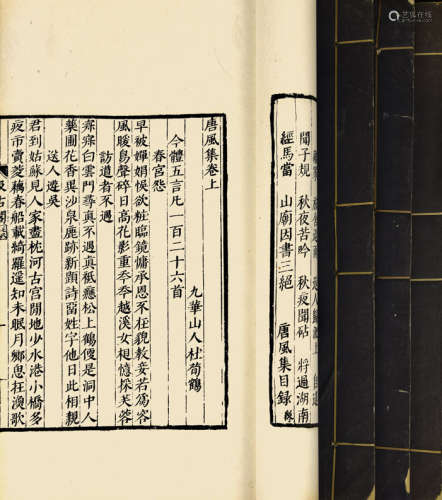 聞子規　秋夜苦吟　秋夜聞砧　將過湖南
經馬當　山廟因書三絕　唐風集目錄 終
唐風集卷上
九華山人杜荀鶴
今體五言凡一百二十六首
春宮怨
早被嬋娟悞欲粧臨鏡慵承恩不在貌教妾若爲容
風暖鳥聲碎日高花影重年年越溪女相憶採芙蓉
訪道者不遇
寂寂白雲門尋真不遇真秪應松上鶴便是洞中人
藥圃花香異沙泉鹿跡新題詩留姓字他日此相親
送人遊吳
君到姑蘇見人家盡枕河古宮閒地少水港小橋多
夜市賣菱藕春船載綺羅遙知未眠月鄉思在漁歌
艺狐在线